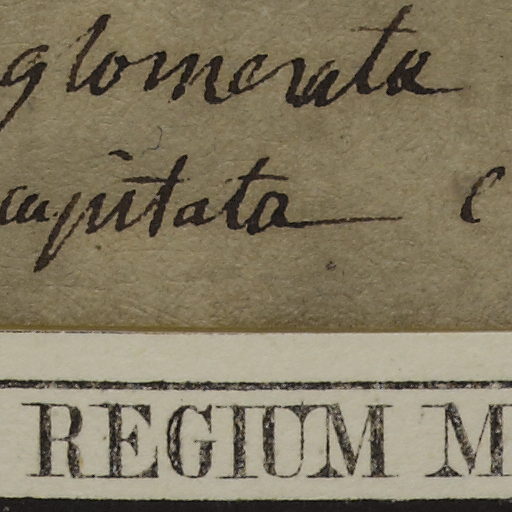 glomerata
capitata c
REGIUM M